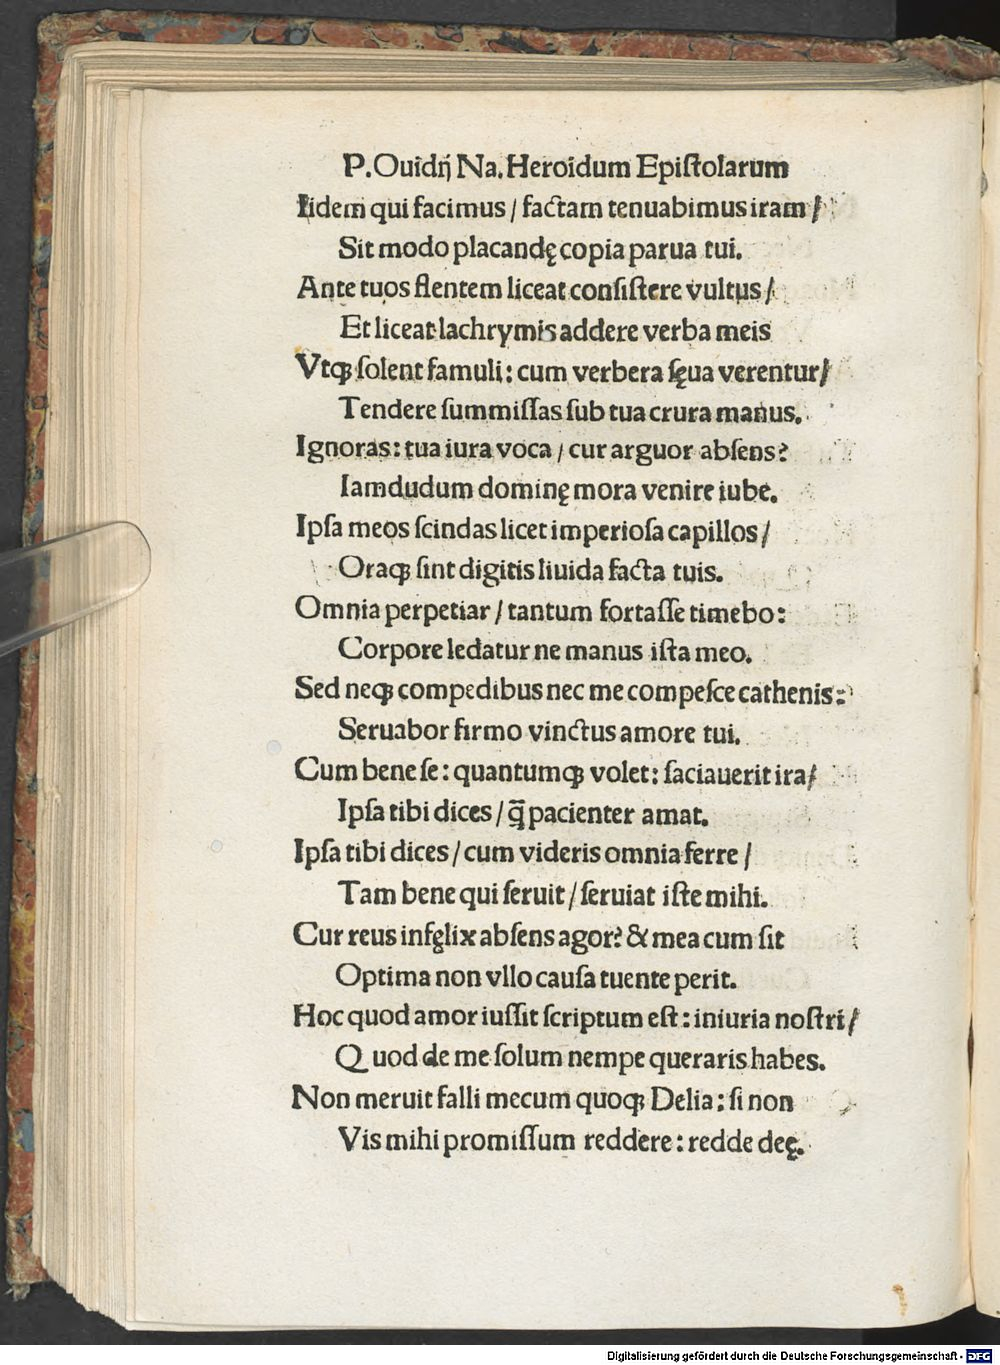 P. Ouidij Na. Heroidum Epiſtolarum
Iidem qui facimus / factam tenuabimus iram /
Sit modo placandę copia parua tui.
Ante tuos flentem liceat conſiſtere vultus /
Et liceat lachrymis addere verba meis
Vtqꝫ ſolent famuli: cum verbera ſęua verentur /
Tendere ſummiſſas ſub tua crura manus.
Ignoras: tua iura voca / cur arguor abſens?
Iamdudum dominę mora venire iube.
Ipſa meos ſcindas licet imperioſa capillos /
Oraqꝫ ſint digitis liuida facta tuis.
Omnia perpetiar / tantum fortaſſe timebo:
Corpore ledatur ne manus iſta meo.
Sed neqꝫ compedibus nec me compeſce cathenis:
Seruabor firmo vinctus amore tui.
Cum bene ſe: quantumqꝫ volet: ſaciauerit ira /
Ipſa tibi dices / q̄ꝫ pacienter amat.
Ipſa tibi dices / cum videris omnia ferre /
Tam bene qui ſeruit / ſeruiat iſte mihi.
Cur reus infęlix abſens agor? & mea cum ſit
Optima non vllo cauſa tuente perit.
Hoc quod amor iuſſit ſcriptum eſt: iniuria noſtri /
Quod de me ſolum nempe queraris habes.
Non meruit falli mecum quoqꝫ Delia: ſi non
Vis mihi promiſſum reddere: redde deę.
Digitalisierung gefördert durch die Deutsche Forschungsgemeinschaft - DFG